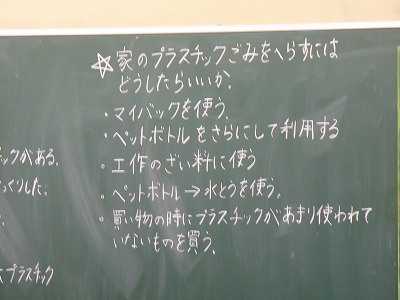 ☆家のプラスチックごみをへらすには
どうしたらいいか。
・マイバックを使う。
・ペットボトルをさらにして利用する
・工作のざい料に使う
・ペットボトル→水とうを使う。
・買い物の時にプラスチックがあまり使われて
いないものを買う。
ックがある。
っくりした。
プラスチック